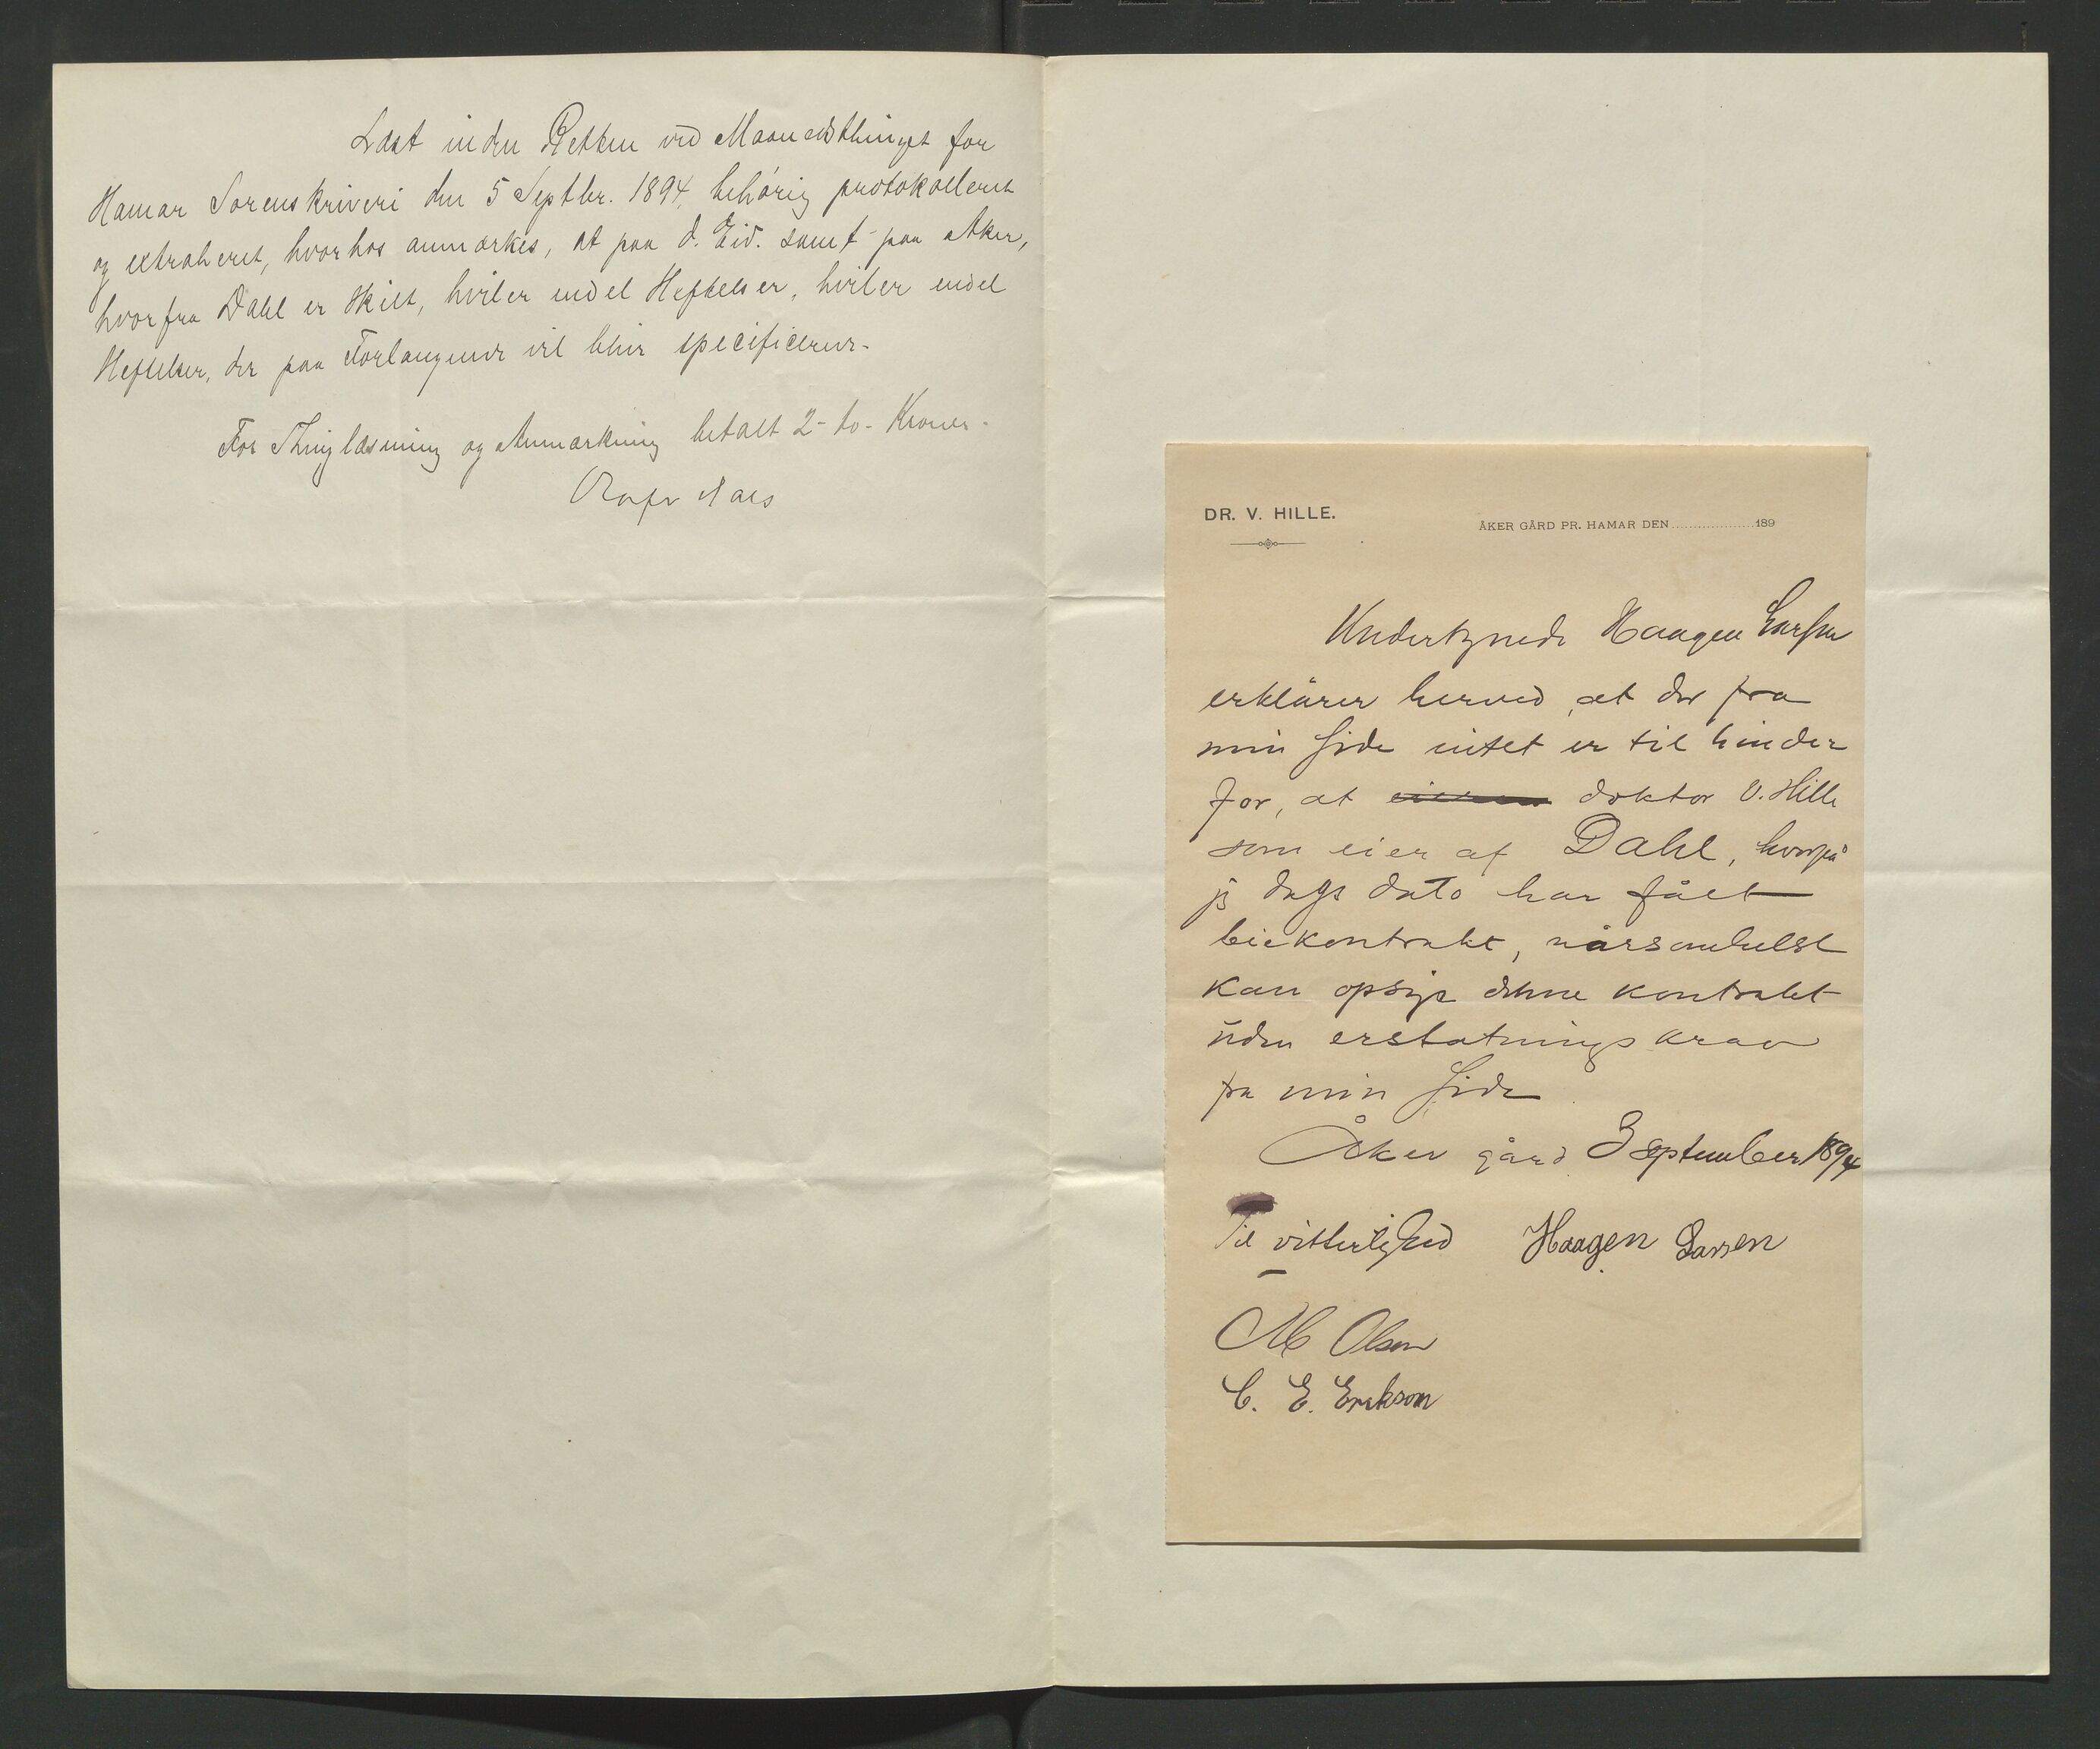 Læst inden Retten ved Maanedsthinget for
Hamar Sorenskriveri den 5 Septbr. 1894, behørig protokolleret
og extraheret, hvorhos anmærkes, at paa d. Eid. samt paa Aker,
hvorfra Dahl er skilt, hviler endel Heftelser, hviler endel
Heftelser, der paa Forlangende vil blive specificerede.
For Thinglæsning og Anmærkning betalt 2 - to - Kroner.
DR. V. HILLE.
ÅKER GÅRD PR. HAMAR DEN 189
Undertegnede Haagen Larsen
erklärer herved, at der fra
min side intet er til hinder
for, at doktor V. Hille
som eier af Dahl, hvorpå
jeg dags dato har fået
leiekontrakt, nårsomhelst
kan opsige denne kontrakt
uden erstatningskrav
fra min side
Åker gård 3 September 1894
Til vitterlighed Haagen Larsen
M Olsen
C. E. Erikson